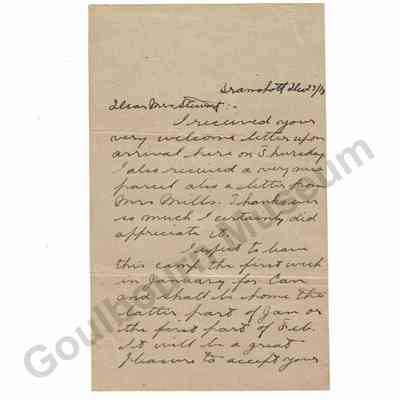 Bramshott Dec 27/18
Dear Mrs Stewart:-
I received your
very welcome letter upon
arrival here on Thursday
I also received a very nice
parcel also a letter from
Mrs Mills. Thanks ever
so much I certainly did
appreciate it.
I expect to leave
this camp the first week
in January for Can
and shall be home the
latter part of Jan or
the first part of Feb.
It will be a great
pleasure to accept your
Goulbourn Museum